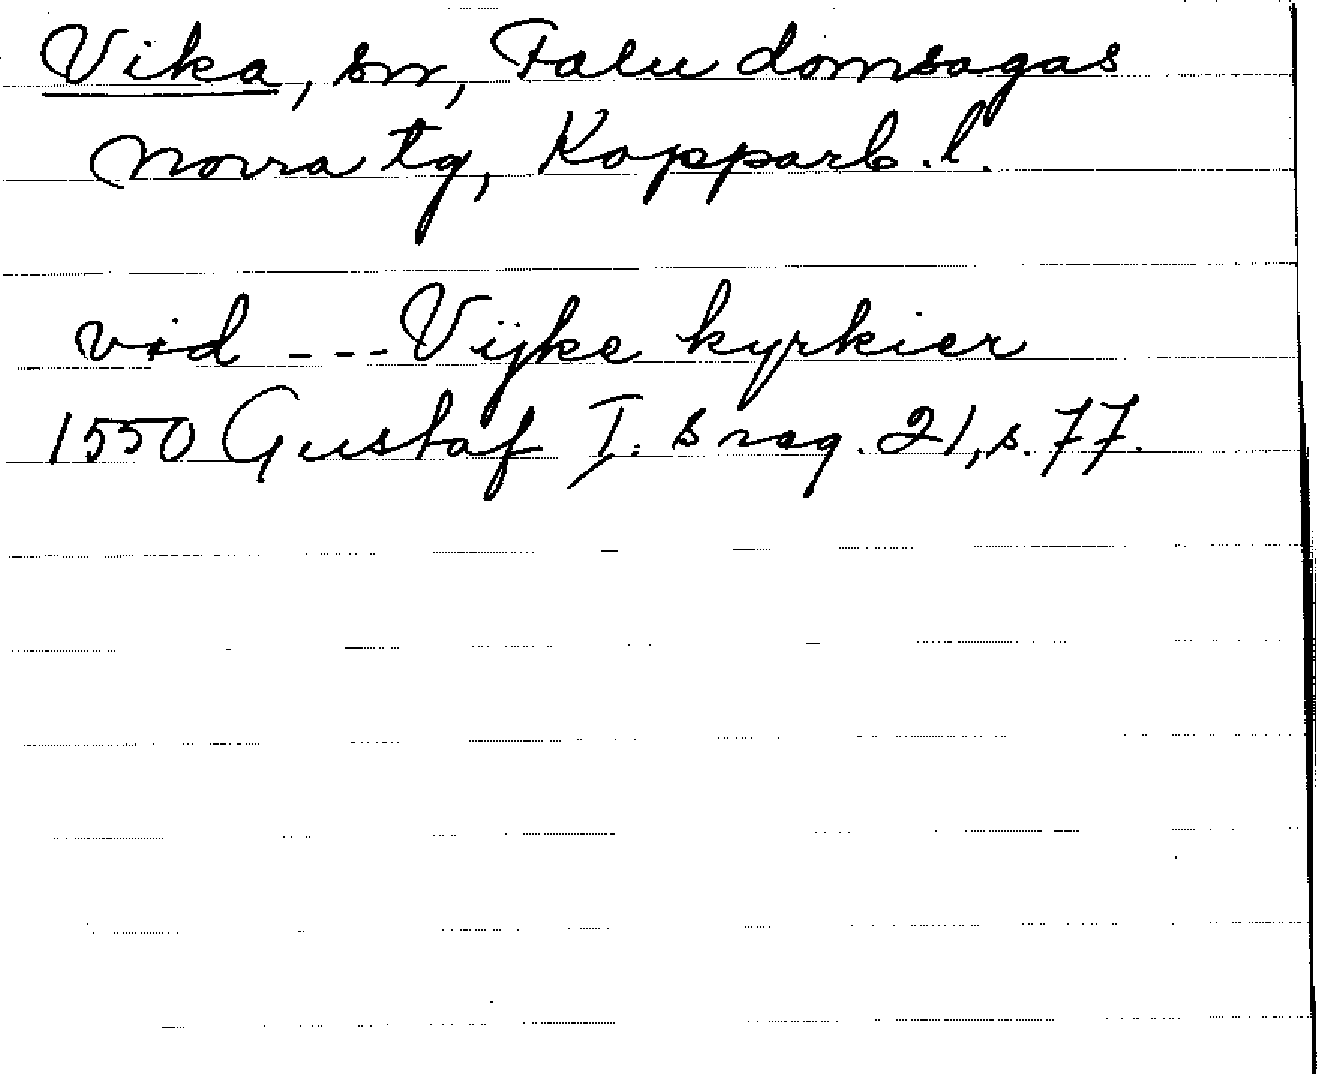 Vika, sn, Falu domsagas
norra tg, Kopparb. l.
vid --- Vijke kyrkier
1550 Gustaf I:s reg. 21, s. 77.